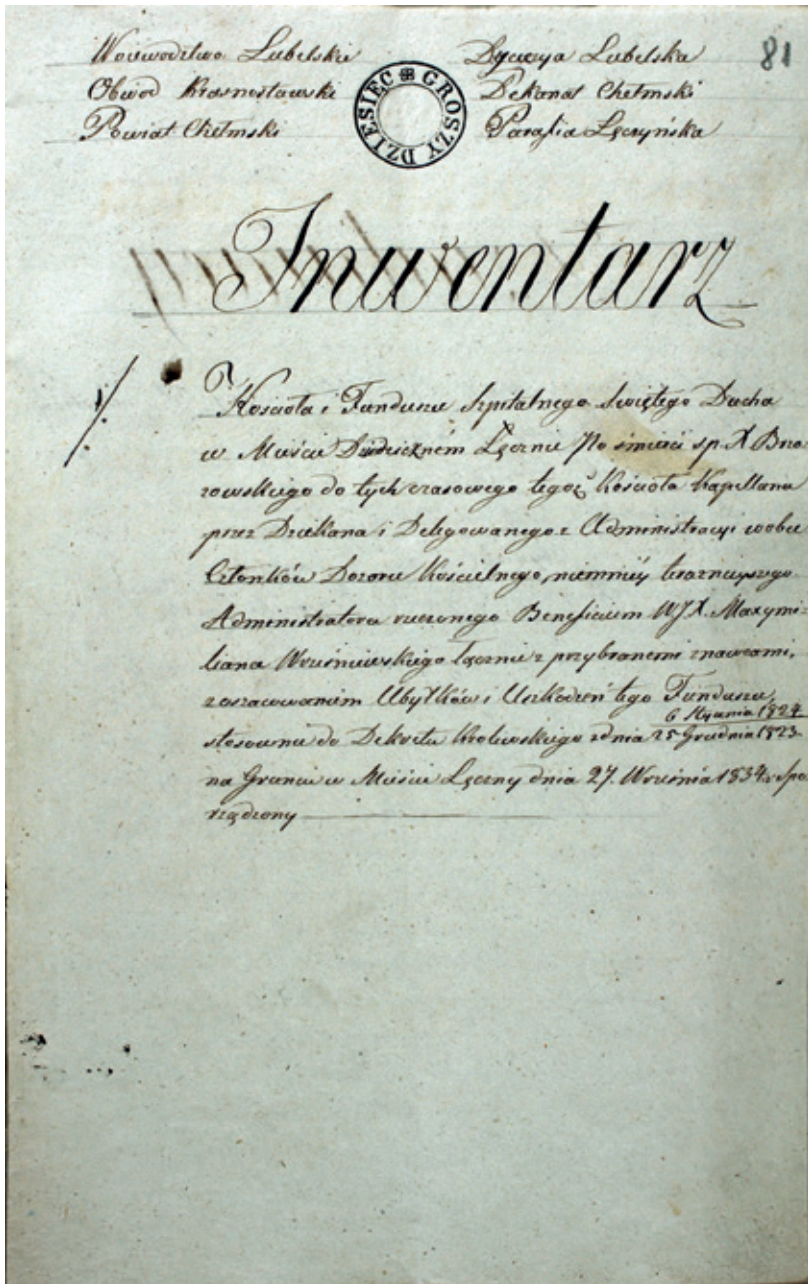 Woiewodztwo Lubelskie
Obwod Krasnostawski
Powiat Chełmski
DZIESIEC GROSZY
Dyecezya Lubelska
Dekanat Chełmski
Parafia Łęczyńska
81
Inwentarz
Kościoła i Funduszu Szpitalnego Swiętego Ducha
w Mieście Dziedzicznem Łęcznie Po śmierci sp. X Brzo
zowskiego do tych czasowego tegoż Kościoła Kapellana
przez Dziekana i Delegowanego z Administracyi wobec
Członków Dozoru Kościelnego, niemniey teraznieyszego
Administratora rzeczonego Beneficium WJX. Maxymi:
liana Wrześniewskiego łącznie z przybranemi znawcami,
zoszacowaniem Ubytków i Uszkodzeń tego Funduszu,
stosownie do Dekretu Krolewskiego zdnia 6 Stycznia 1824 / 25 Grudnia 1823
na Gruncie w Mieście Łęczny dnia 27. Września 1834 r Spo
rządzony